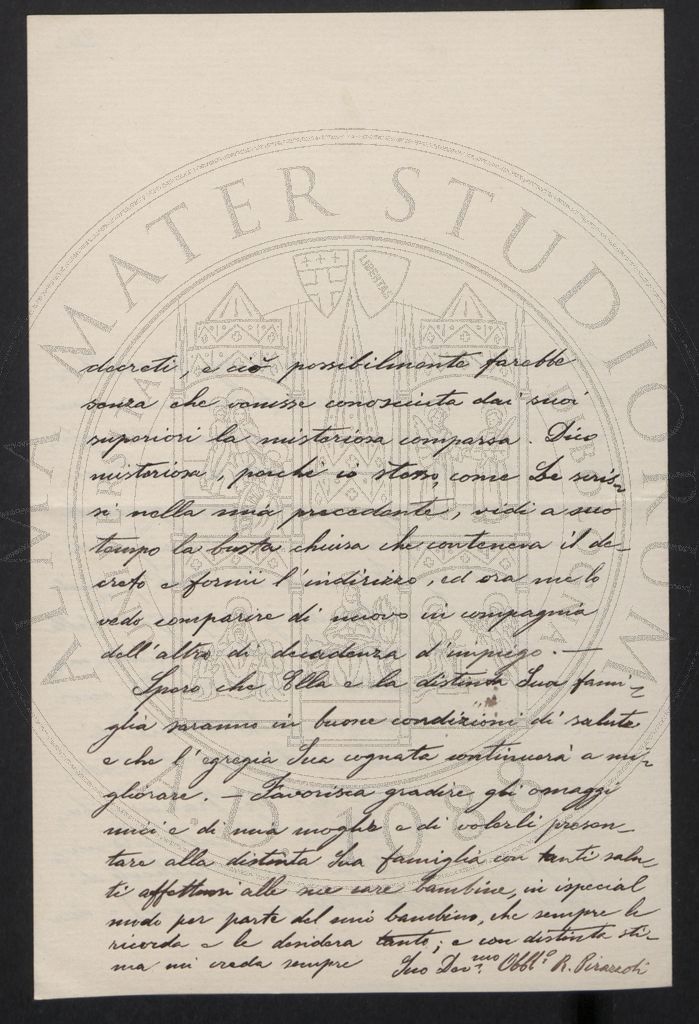 decreti, e ciò possibilmente farebbe
senza che venisse conosciuta dai suoi
superiori la misteriosa comparsa. Dico
misteriosa, perchè io stesso, come Le scris-
si nella mia precedente, vidi a suo
tempo la busta chiusa che conteneva il de-
creto e fornii l'indirizzo, ed ora me lo
vedo comparire di nuovo in compagnia
dell'altro di decadenza d'impiego. —
Spero che Ella e la distinta Sua fami-
glia saranno in buone condizioni di salute
e che l'egregia Sua cognata continuerà a mi-
gliorare. — Favorisca gradire gli omaggi
miei e di mia moglie e di volerli presen-
tare alla distinta Sua famiglia con tanti salu-
ti affettuosi alle sue care bambine, in ispecial
modo per parte del mio bambino, che sempre le
ricorda e le desidera tanto; e con distinta sti-
ma mi creda sempre Suo Dev.mo Obbl.o R. Pirazzoli
ALMA MATER STUDIORUM
A.D. 1088
LIBERTAS